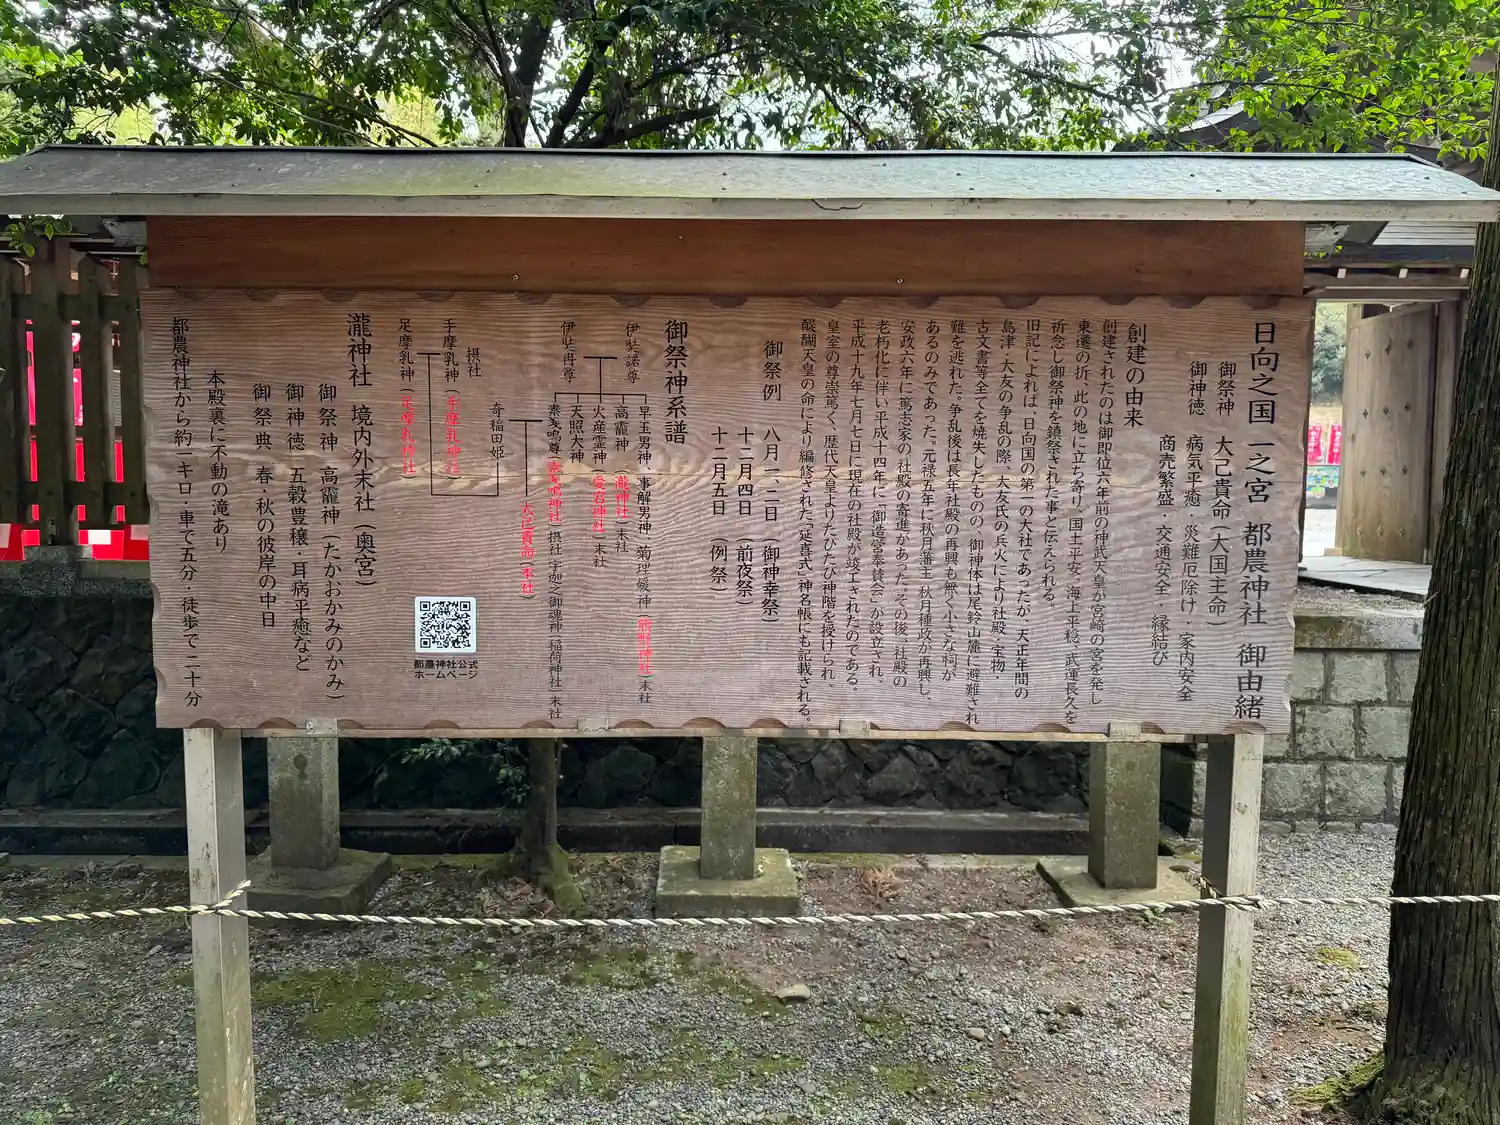 日向之国 一之宮 都農神社 御由緒
御祭神 大己貴命(大国主命)
御神徳 病気平癒・災難厄除け・家内安全
商売繁盛・交通安全 縁結び
創建の由来
創建されたのは御即位六年前の神武天皇が宮崎の宮を発し
東遷の折、此の地に立ち寄り、国土平安、海上平穏、武運長久を
祈念し御祭神を鎮祭された事と伝えられる。
旧記によれば、日向国の第一の大社であったが、天正年間の
島津・大友の争乱の際、大友氏の兵火により社殿・宝物・
古文書等全てを焼失したものの、御神体は尾鈴山麓に避難され
難を逃れた。争乱後は長年社殿の再興も無く小さな祠が
あるのみであった。元禄五年に秋月藩主 秋月種政が再興し、
安政六年に篤志家の社殿の寄進があった。その後、社殿の
老朽化に伴い、平成十四年に「御造営奉賛会」が設立され、
平成十九年七月七日に現在の社殿が竣工されたのである。
皇室の尊崇篤く、歴代天皇よりたびたび神階を授けられ、
醍醐天皇の命により編修された「延喜式」神名帳にも記載される。
御祭例 八月一、二日(御神幸祭)
十二月四日 (前夜祭)
十二月五日 (例祭)
御祭神系譜
伊弉諾尊
伊弉冉尊
早玉男神、事解男神、菊理媛神(熊野神社)末社
高龗神 (瀧神社)末社
火産霊神 (愛宕神社)末社
天照大神
素戔嗚尊(素戔嗚神社)摂社 宇迦之御魂神(稲荷神社)末社
大己貴命(本社)
奇稲田姫
摂社
手摩乳神(手摩乳神社)
足摩乳神(足摩乳神社)
都農神社公式
ホームページ
瀧神社 境内外末社(奥宮)
御祭神 高龗神(たかおかみのかみ)
御神徳 五穀豊穣・耳病平癒など
御祭典 春・秋の彼岸の中日
本殿裏に不動の滝あり
都農神社から約一キロ・車で五分・徒歩で二十分